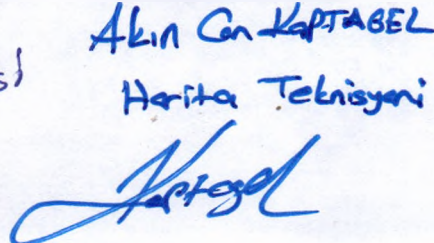 Akın Can KAPTAGEL
Harita Teknisyeni
Kaptagel